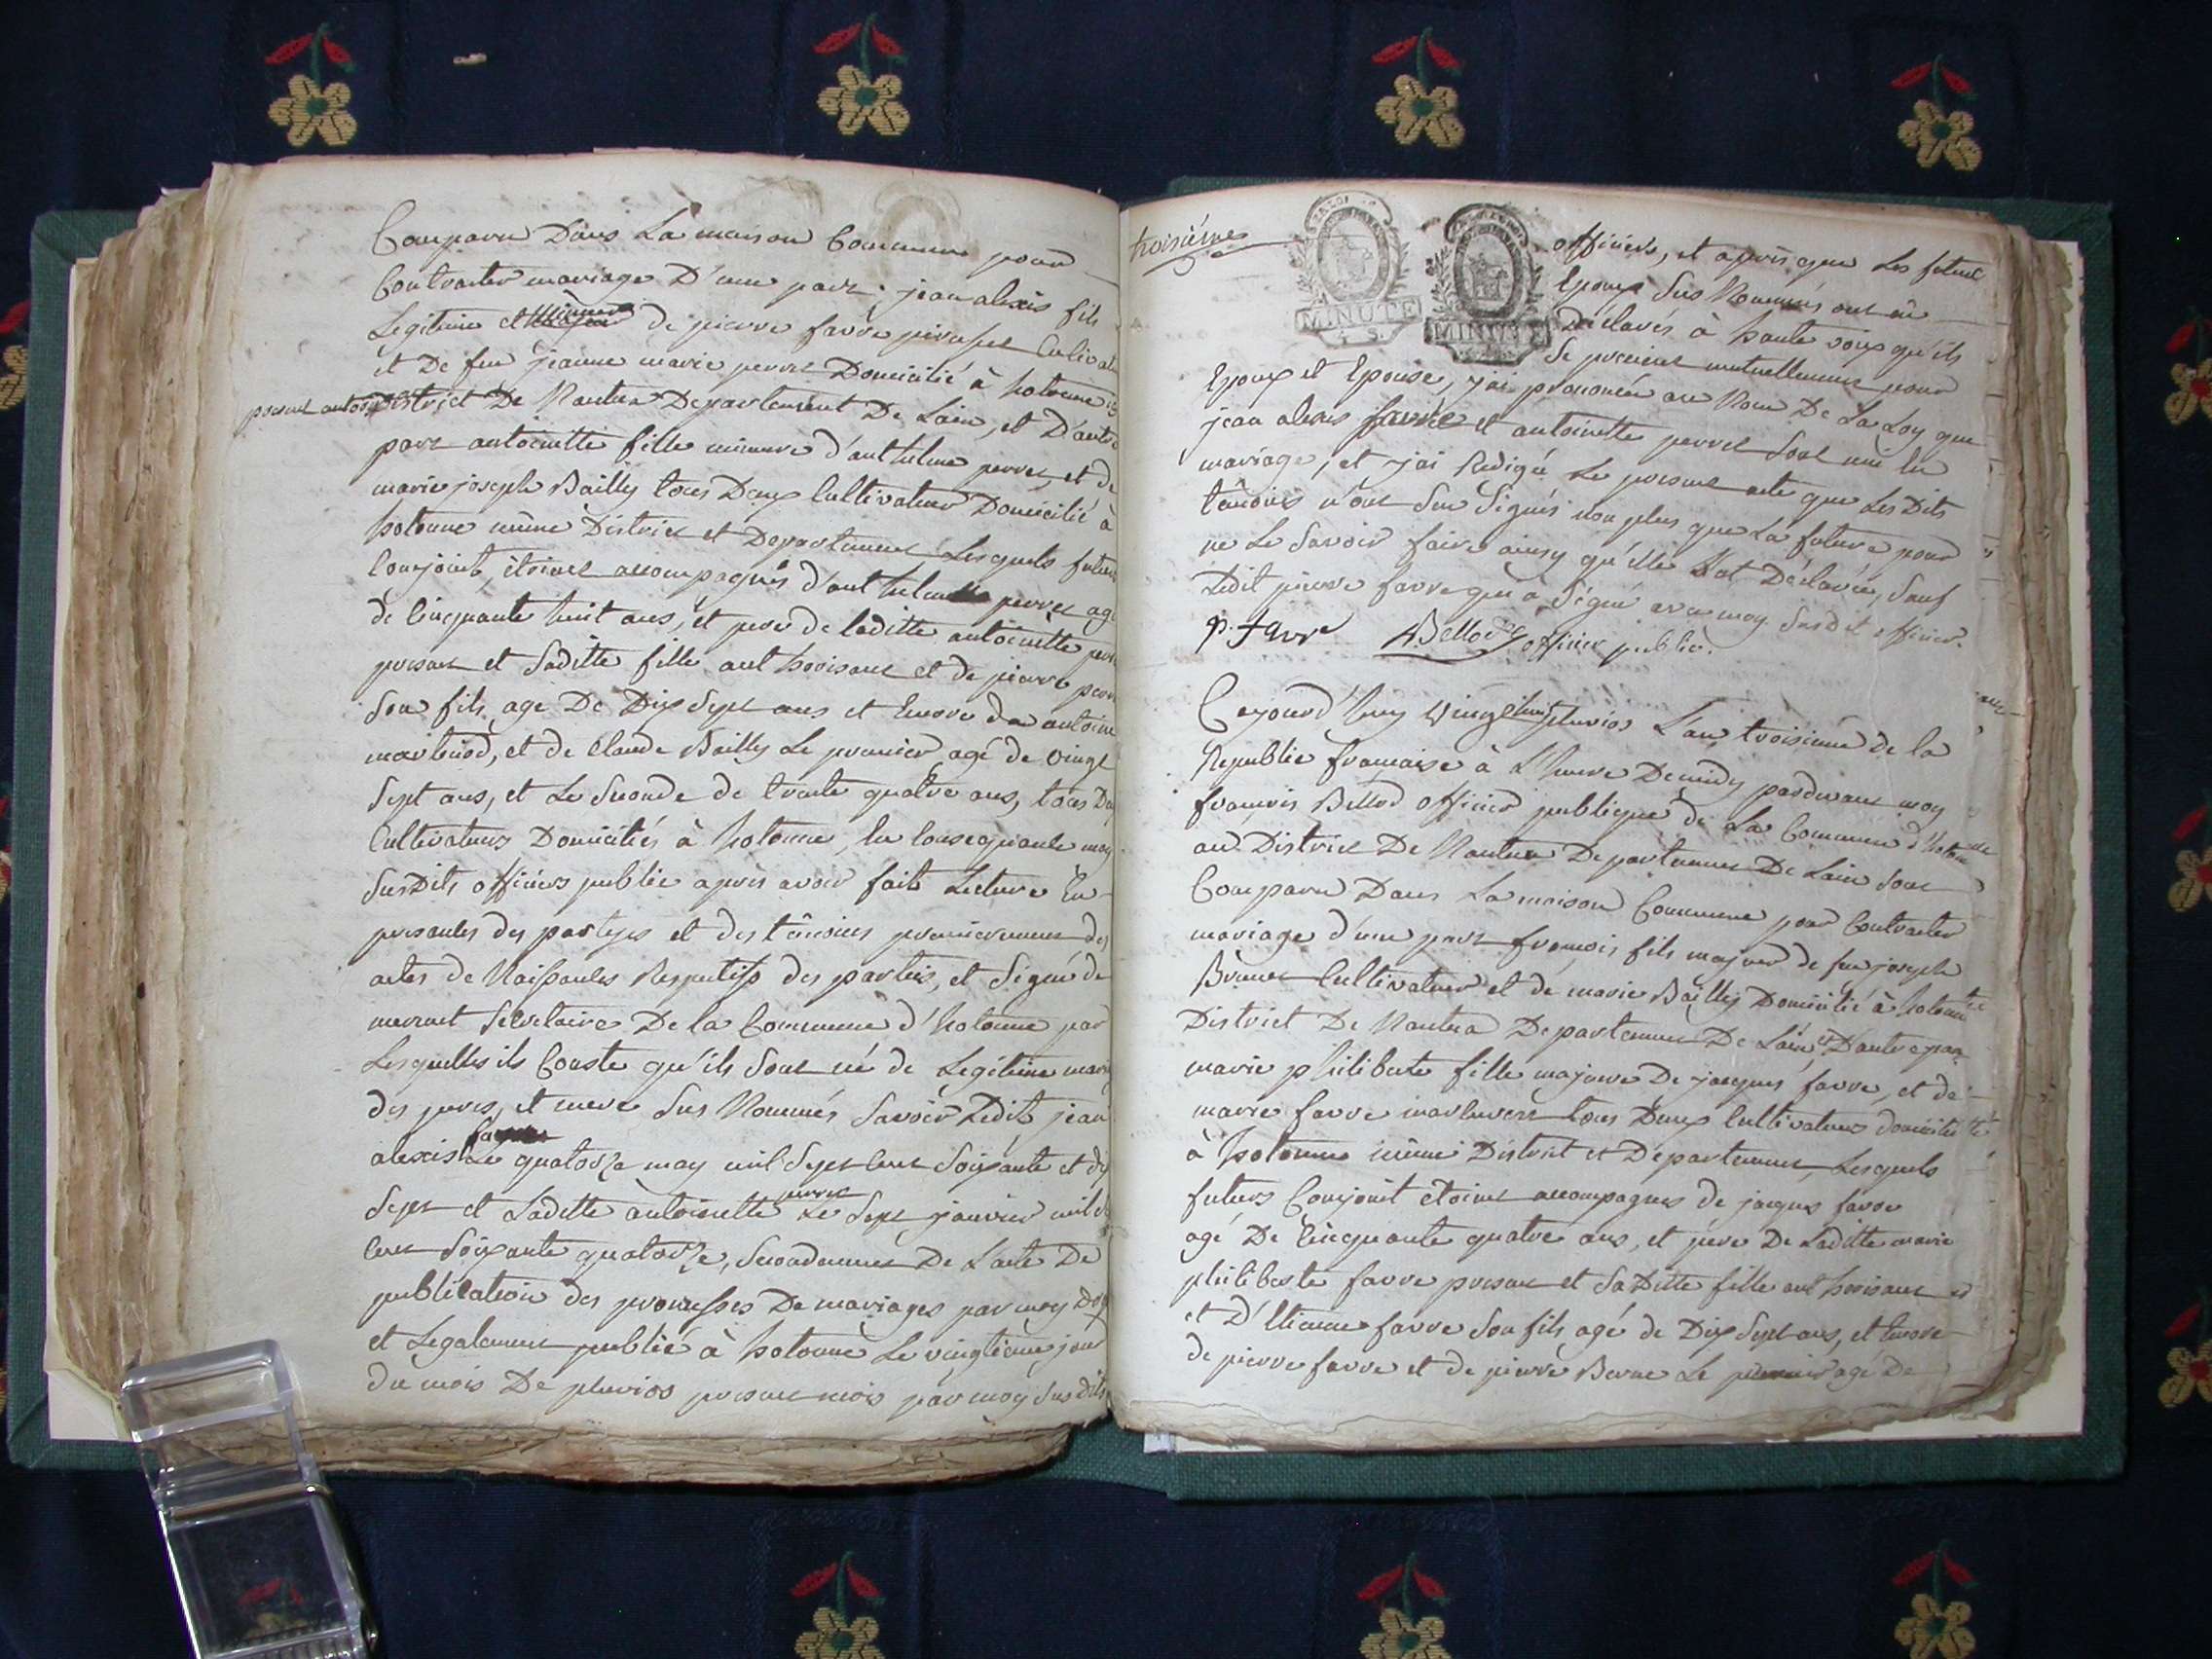 Comparu Dans La maison Commune pour
Contracter mariage D'une part, jean alexis fils
Legitime et de pierre favre cultivat
et De feu jeanne marie perret Domicilié à hotonne
present autorisant District De Nantua Departement De Lain, et D'autre
part antoinette fille mineure d'anthelme perret, et de
marie joseph Bailly tous Deux Cultivateur Domicilié à
hotonne même District et Departement Lesquels futurs
Conjoint, étoient accompagnés d'anthelme perret agé
de Cinquante huit ans, et pere de laditte antoinette perret
present et Saditte fille authorisant et de pierre perret
Son fils agé De Dix Sept ans et Encore de antoine
martinod, et de Claude Bailly Le premier agé de vingt
Sept ans, et Le Seconde de trente quatre ans, tous Deux
Cultivateurs Domiciliés à hotonne, En Consequance moy
SusDits officiers public après avoir fait Lecture En
presantes des partyes et des témoins premierement des
actes de Naissantes Respectifs des parties, et Signé de
Secretaire De la Commune d'hotonne par
Lesquelles ils Conste qu'ils Sont né de Legitime mariage
des peres, et mere Sus Nommés Savoir Ledit jean
alexis favre Le quatorze may mil Sept Cent Soixante et dix
Sept et Laditte antoinette perret Le Sept janvier mil Sept
Cent Soixante quatorze, Secondement De Lacte De
publication des promesses De mariages par moy
et Legalement publié à hotonne Le vingtieme jour
du mois De pluvios present mois par moy Susdits
troisiéme
MINUTE
4 S.
MINUTE
officiers, et après que Les futurs
Epoux Sus Nommés ont eu
Déclarés à haute voix qu'ils
Se prenient mutuellement pour
Epoux et Epouse, j'ai prononcée au Nom De La Loy que
jean alexis favre et antoinette perret Sont uni En
mariage, et j'ai Redigé Le present acte que Les Dits
témoins n'ont Seu Signés non plus que La future pour
ne Le Savoir faire ainsy qu'elle Lat Déclarée, Sauf
Ledit pierre favre qui à Signé avec moy Susdit officier.
p. favre Bellod officier public.
Cejourd'huy vingt huit pluvios L'an troisieme de la
Republic française à L'heure De midy pardevant moy
françois Bellod officier publique de La Commune d'hotonne
au District De Nantua Departement De Lain Sont
Comparu Dans La maison Commune pour Contracter
mariage d'une part françois fils majeur de feu joseph
Brunet Cultivateur et de marie Bailly Domicilié à hotonne
District De Nantua Departement De Lain et D'autre part
marie philiberte fille majeure De jacques favre, et de
marie favre tous Deux Cultivateurs domicilié
à hotonne même District et Departement, Lesquels
futurs Conjoint étoient accompagnes de jacques favre
agé De Cinquante quatre ans, et père De Laditte marie
philiberte favre present et Saditte fille authorisant
et D'Etienne favre Son fils agé de Dix Sept ans, et Encore
de pierre favre et de pierre Le premier agé De